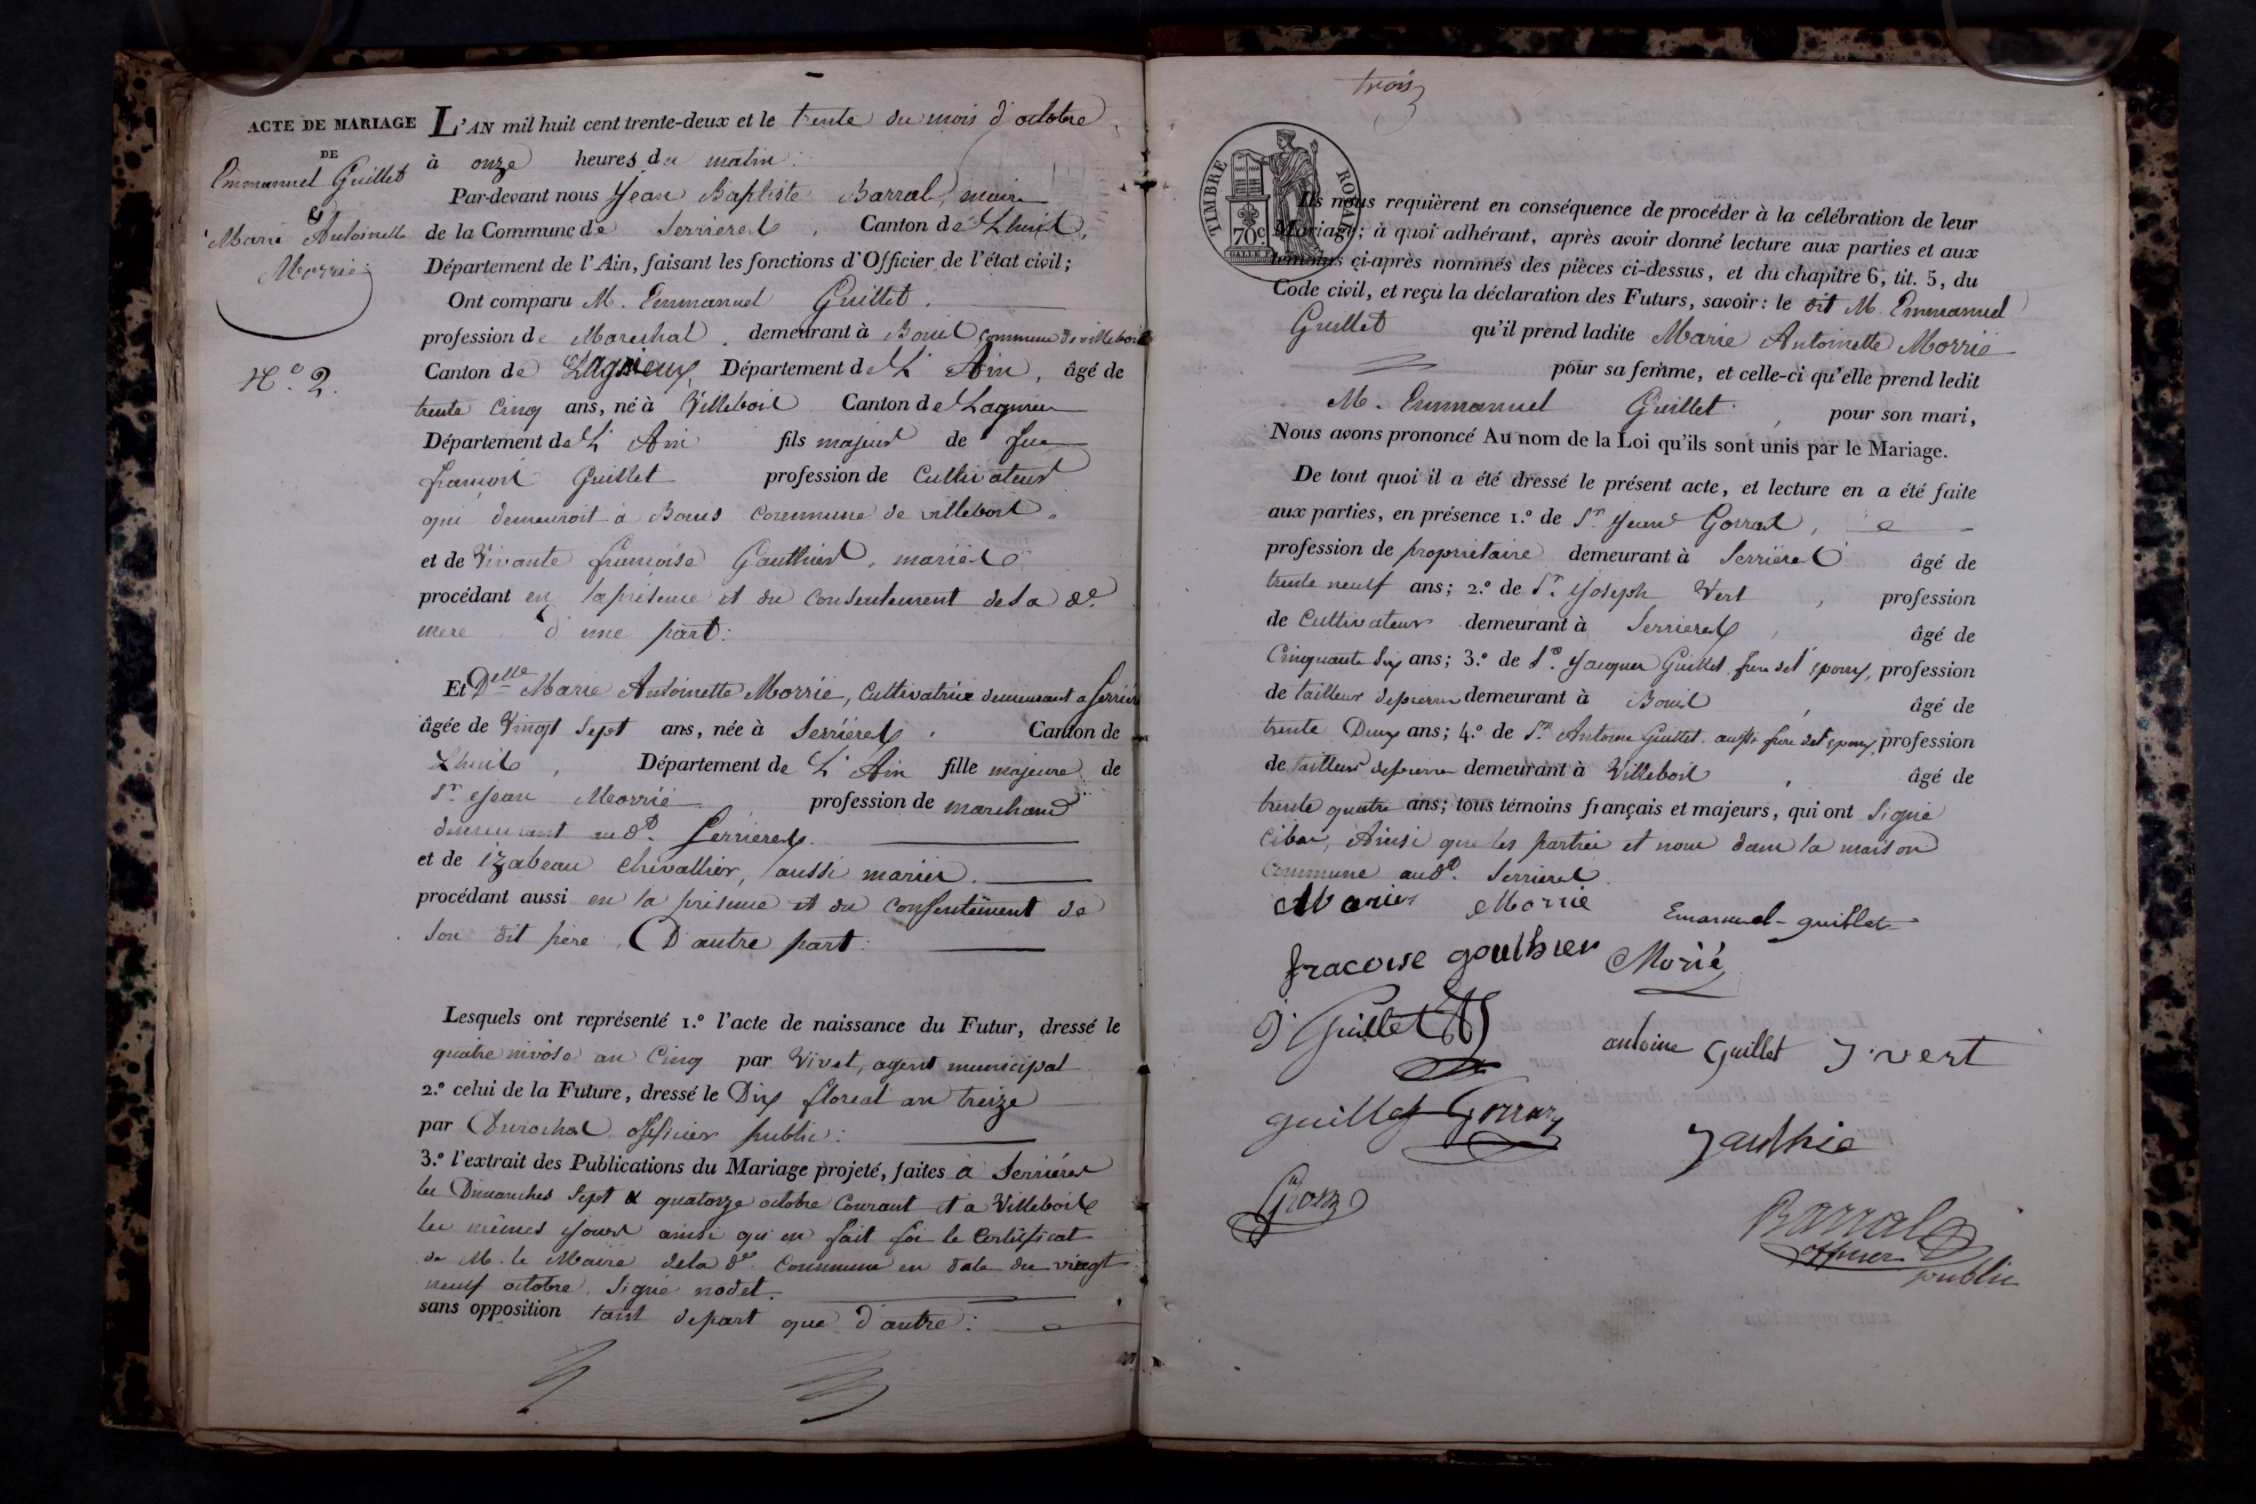 ACTE DE MARIAGE
DE
Emmanuel Guillet
&
Marie Antoinette
Morrié
N.o 2.
L'AN mil huit cent trente-deux et le trente du mois d'octobre
à onze heures du matin :
Par-devant nous Jean Baptiste Barral, maire
de la Commune de Serrieres, Canton de Lhuis,
Département de l'Ain, faisant les fonctions d'Officier de l'état civil;
Ont comparu M. Emmanuel Guillet.
profession de Marechal, demeurant à Bouis commune de villebois
Canton de Lagnieux, Département de L'Ain, âgé de
trente cinq ans, né à Villebois Canton de Lagnieu
Département de L'Ain fils majeur de feu
françois Guillet profession de Cultivateur
qui demeuroit à Bouis commune de villebois.
et de Vivante françoise Gauthier, mariés
procédant en la présence et du consentement de sa de.
mere d'une part :
Et Delle Marie Antoinette Morrié, Cultivatrice demeurant a Serrier
âgée de Vingt Sept ans, née à Serriéres, Canton de
Lhuis, Département de L'Ain fille majeure de
Sr. Jean Morrié profession de marchand
demeurant aud. Serrieres.
et de izabeau chevallier, aussi mariés.
procédant aussi en la présence et du consentement de
son dit père, D'autre part :
Lesquels ont représenté 1.o l'acte de naissance du Futur, dressé le
quatre nivôse an Cinq par Vivet, agent municipal
2.o celui de la Future, dressé le Dix floreal an treize
par Durochat officier public :
3.o l'extrait des Publications du Mariage projeté, faites à Serriéres
les Dimanches Sept & quatorze octobre Courant et a Villebois
les mêmes jours ainsi qu'en fait foi le Certificat
de M. le Maire de la de. Commune en date du vingt
neuf octobre, Signé nodet.
sans opposition tant de part que d'autre :
trois
TIMBRE ROYAL
70c
Ils nous requièrent en conséquence de procéder à la célébration de leur
Mariage; à quoi adhérant, après avoir donné lecture aux parties et aux
témoins ci-après nommés des pièces ci-dessus, et du chapitre 6, tit. 5, du
Code civil, et reçu la déclaration des Futurs, savoir : le dit M. Emmanuel
Guillet qu'il prend ladite Marie Antoinette Morrié
pour sa femme, et celle-ci qu'elle prend ledit
M. Emmanuel Guillet, pour son mari,
Nous avons prononcé Au nom de la Loi qu'ils sont unis par le Mariage.
De tout quoi il a été dressé le présent acte, et lecture en a été faite
aux parties, en présence 1.o de Sr. Jean Gorrat,
profession de propriétaire demeurant à Serriéres âgé de
trente neuf ans; 2.o de Sr. Joseph Vert, profession
de Cultivateur demeurant à Serrieres, âgé de
Cinquante Six ans; 3.o de Sr. Jacques Guillet frere de l'epoux, profession
de tailleur de pierre demeurant à Bouis, âgé de
trente Deux ans; 4.o de Sr. Antoine Guillet aussi frere de l'epoux, profession
de tailleur de pierre demeurant à Villebois, âgé de
trente quatre ans; tous témoins français et majeurs, qui ont Signé
cibas, Ainsi que les parties et nous dans la maison
commune aud. Serrieres.
Morrié Emanuel guillet
fracoise gouthier Morié
J. Guillet
antoine Guillet J. vert
guillet
Barral
officier
public